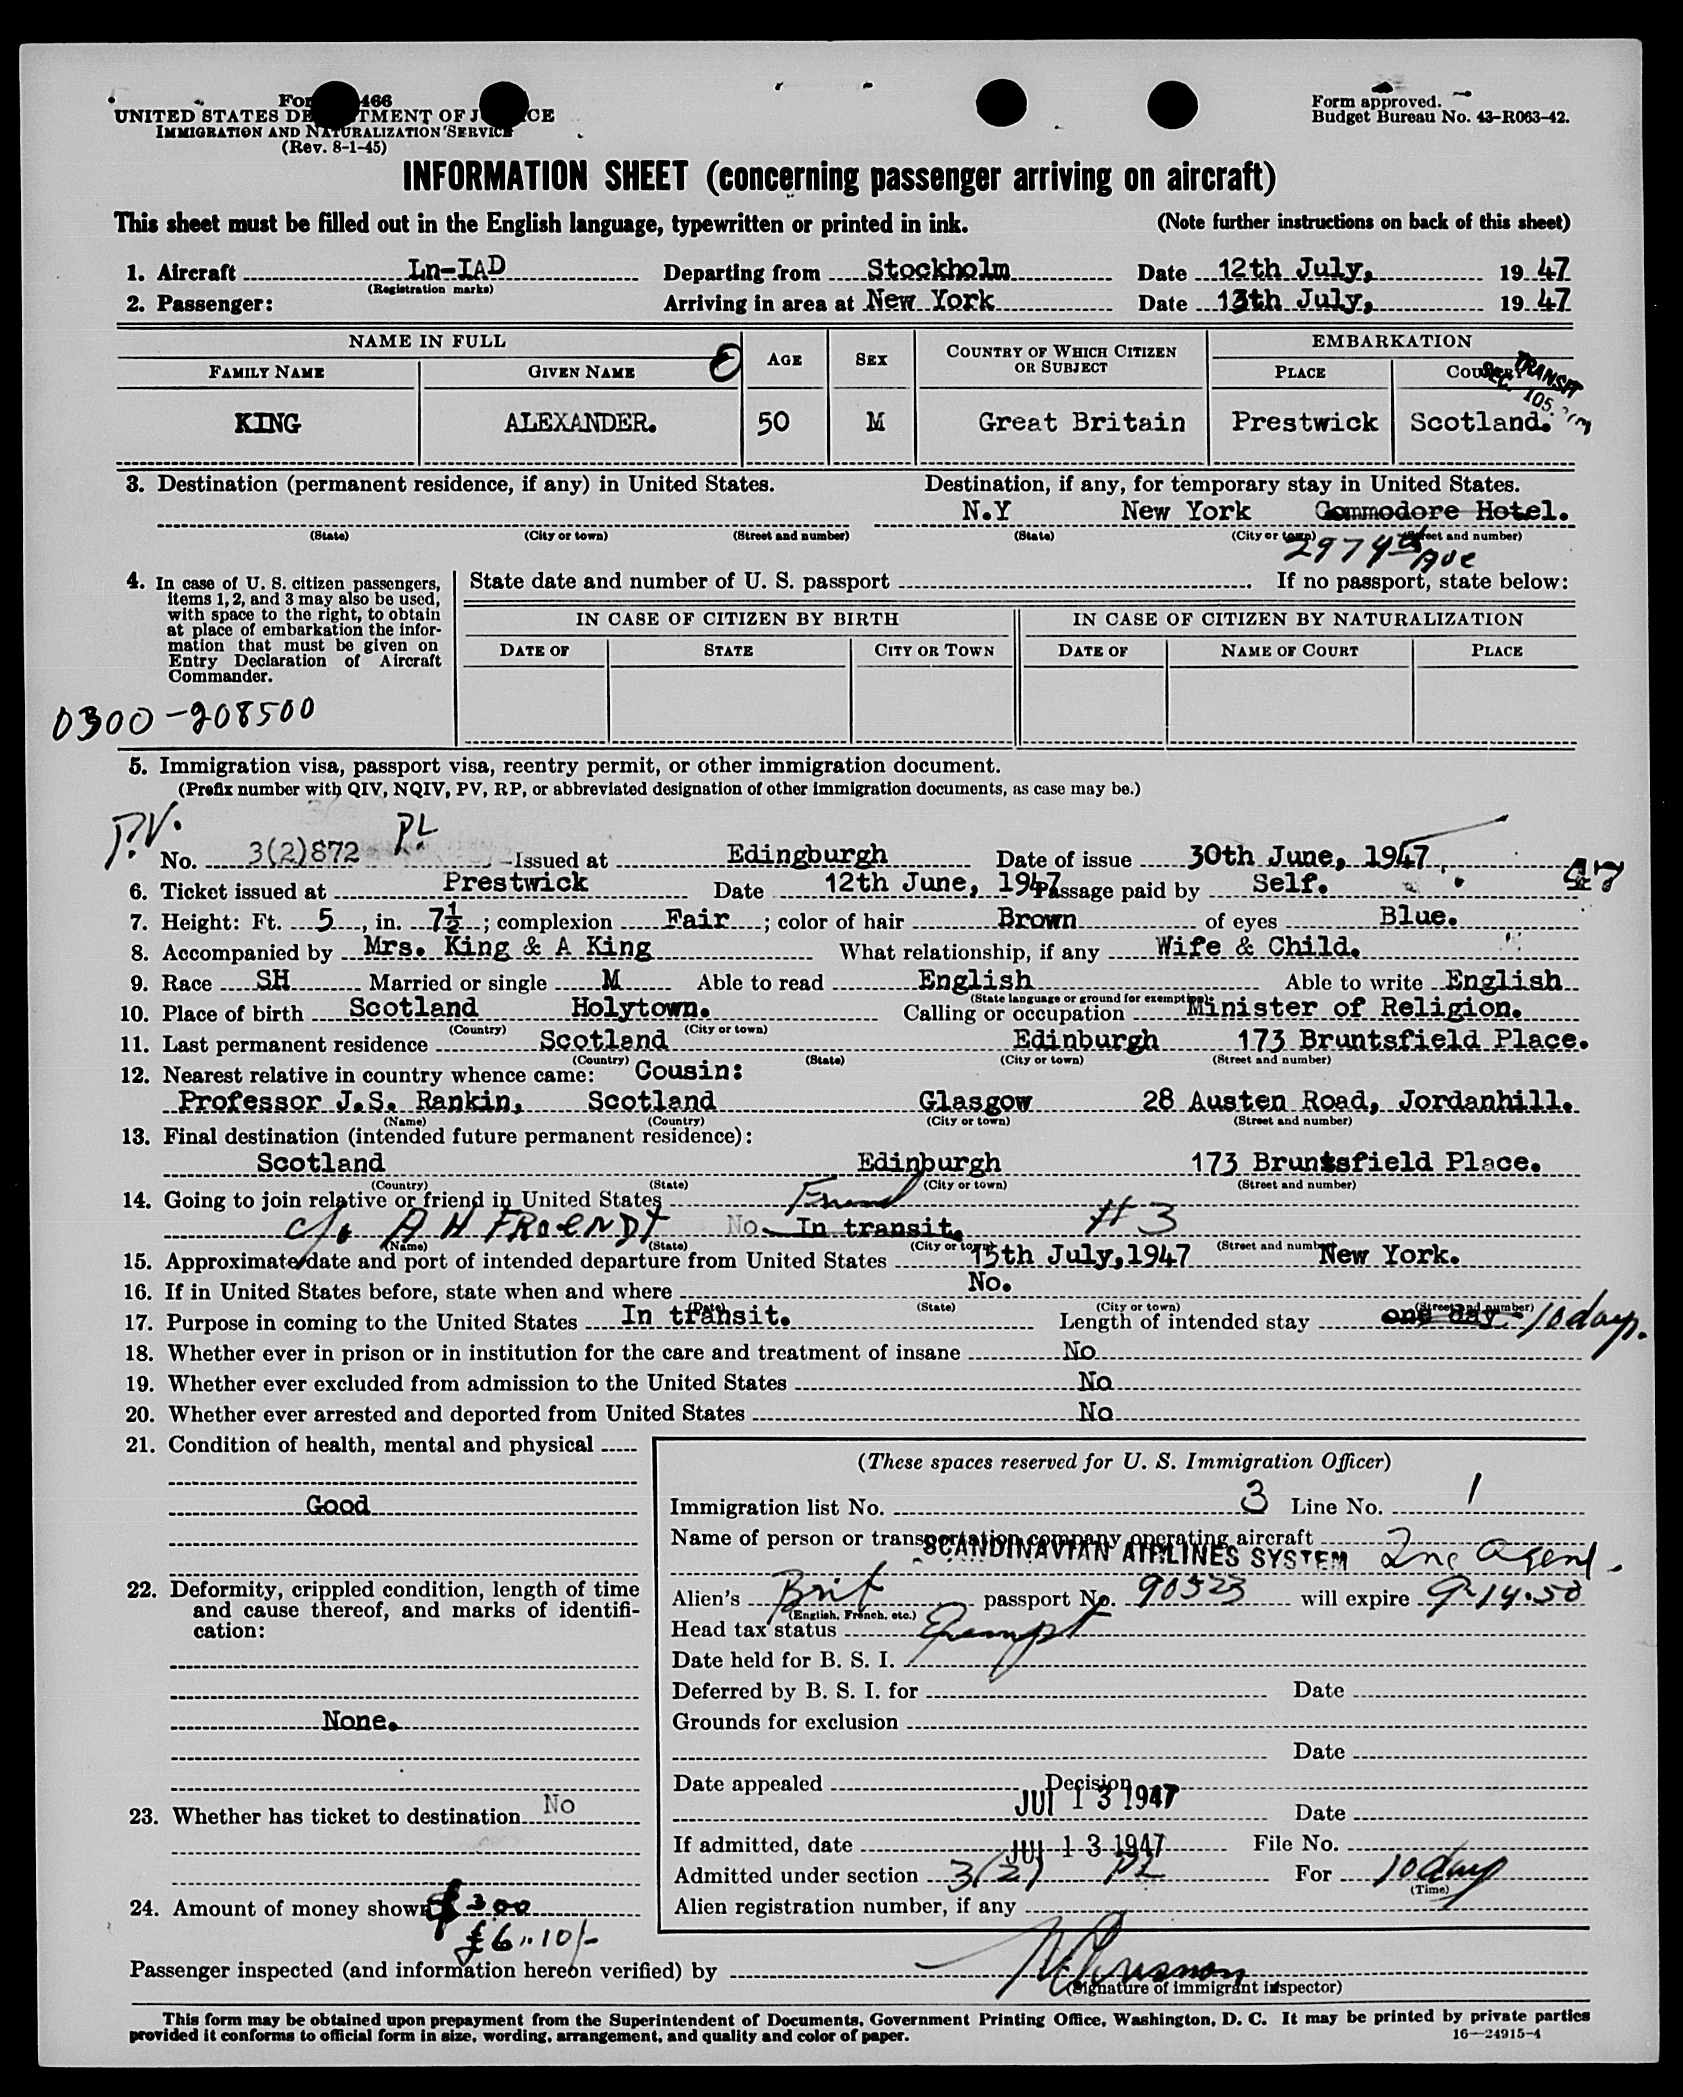 466
UNITED STATES DE TMENT OF J CE
IMMIGRATION AND NATURALIZATION SERVICE
(Rev. 8-1-45)
Form approved.
Budget Bureau No. 43-R063-42.
INFORMATION SHEET (concerning passenger arriving on aircraft)
This sheet must be filled out in the English language, typewritten or printed in ink. (Note further instructions on back of this sheet)
1. Aircraft Ln-IAD Departing from Stockholm Date 12th July, 19 47
(Registration marks)
2. Passenger: Arriving in area at New York Date 13th July, 19 47
NAME IN FULL AGE SEX COUNTRY OF WHICH CITIZEN OR SUBJECT EMBARKATION
FAMILY NAME GIVEN NAME PLACE COUNTRY
TRANSIT
SEC. 105.
KING ALEXANDER. 50 M Great Britain Prestwick Scotland.
3. Destination (permanent residence, if any) in United States. Destination, if any, for temporary stay in United States.
N.Y New York Commodore Hotel.
(State) (City or town) (Street and number) (State) (City or town) (Street and number)
297 4th Ave
4. In case of U. S. citizen passengers, items 1, 2, and 3 may also be used, with space to the right, to obtain at place of embarkation the information that must be given on Entry Declaration of Aircraft Commander.
State date and number of U. S. passport . If no passport, state below:
IN CASE OF CITIZEN BY BIRTH IN CASE OF CITIZEN BY NATURALIZATION
DATE OF STATE CITY OR TOWN DATE OF NAME OF COURT PLACE
0300-208500
5. Immigration visa, passport visa, reentry permit, or other immigration document.
(Prefix number with QIV, NQIV, PV, RP, or abbreviated designation of other immigration documents, as case may be.)
P.V. No. 3(2)872 PL Issued at Edingburgh Date of issue 30th June, 1947
6. Ticket issued at Prestwick Date 12th June, 1947 Passage paid by Self.
7. Height: Ft. 5, in. 7½; complexion Fair; color of hair Brown of eyes Blue.
8. Accompanied by Mrs. King & A King What relationship, if any Wife & Child.
9. Race SH Married or single M Able to read English Able to write English
(State language or ground for exemption)
10. Place of birth Scotland Holytown. Calling or occupation Minister of Religion.
(Country) (City or town)
11. Last permanent residence Scotland Edinburgh 173 Bruntsfield Place.
(Country) (State) (City or town) (Street and number)
12. Nearest relative in country whence came: Cousin:
Professor J.S. Rankin, Scotland Glasgow 28 Austen Road, Jordanhill.
(Name) (Country) (City or town) (Street and number)
13. Final destination (intended future permanent residence):
Scotland Edinburgh 173 Bruntsfield Place.
(Country) (State) (City or town) (Street and number)
14. Going to join relative or friend in United States Friend
c/o A H FROENDT No. In transit. #3
(Name) (State) (City or town) (Street and number)
15. Approximate date and port of intended departure from United States 15th July,1947 New York.
16. If in United States before, state when and where No.
(Date) (State) (City or town) (Street and number)
17. Purpose in coming to the United States In transit. Length of intended stay one day- 10 days.
18. Whether ever in prison or in institution for the care and treatment of insane No
19. Whether ever excluded from admission to the United States No
20. Whether ever arrested and deported from United States No
21. Condition of health, mental and physical
Good
22. Deformity, crippled condition, length of time and cause thereof, and marks of identification:
None.
23. Whether has ticket to destination No
24. Amount of money shown $300
£6.,10/-
(These spaces reserved for U. S. Immigration Officer)
Immigration list No. 3 Line No. 1
Name of person or transportation company operating aircraft
SCANDINAVIAN AIRLINES SYSTEM Inc Agent.
Alien's Brit passport No. 90523 will expire 9-14-50
(English, French, etc.)
Head tax status Exempt
Date held for B. S. I.
Deferred by B. S. I. for Date
Grounds for exclusion
Date
Date appealed Decision
JUL 13 1947 Date
If admitted, date JUL 13 1947 File No.
Admitted under section 3(2) PL For 10 days
(Time)
Alien registration number, if any
Passenger inspected (and information hereon verified) by
(Signature of immigrant inspector)
This form may be obtained upon prepayment from the Superintendent of Documents, Government Printing Office, Washington, D. C. It may be printed by private parties
provided it conforms to official form in size, wording, arrangement, and quality and color of paper. 16—24915-4